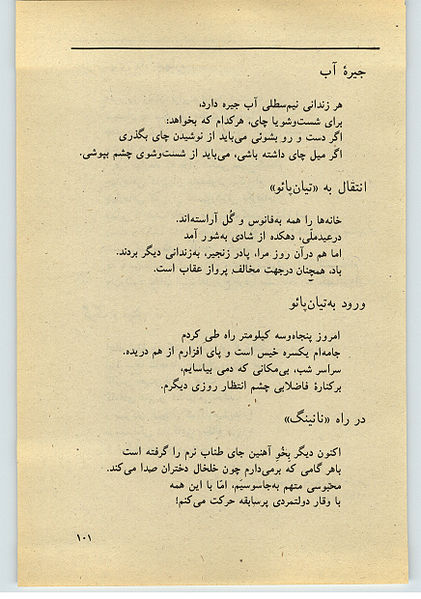 جیرهٔ آب
هر زندانی نیم‌سطلی آب جیره دارد،
برای شست‌وشو یا چای، هرکدام که بخواهد:
اگر دست و رو بشوئی می‌باید از نوشیدن چای بگذری
اگر میل چای داشته باشی، می‌باید از شست‌وشوی چشم بپوشی.
انتقال به «تیان‌پائو»
خانه‌ها را همه به‌فانوس و گُل آراسته‌اند.
درعیدملّی، دهکده از شادی به‌شور آمد
اما هم درآن روز مرا، پادر زنجیر، به‌زندانی دیگر بردند.
باد، همچنان درجهت مخالف پرواز عقاب است.
ورود به‌تیان‌پائو
امروز پنجاه‌وسه کیلومتر راه طی کردم
جامه‌ام یکسره خیس است و پای افزارم از هم دریده.
سراسر شب، بی‌مکانی که دمی بیاسایم،
برکنارهٔ فاضلابی چشم انتظار روزی دیگرم.
در راه «نانینگ»
اکنون دیگر بِخُو آهنین جای طناب نرم را گرفته است
باهر گامی که برمی‌دارم چون خلخال دختران صدا می‌کند.
محبوسی متهم به‌جاسوسیم، امّا با این همه
با وقار دولتمردی پرسابقه حرکت می‌کنم!
۱۰۱